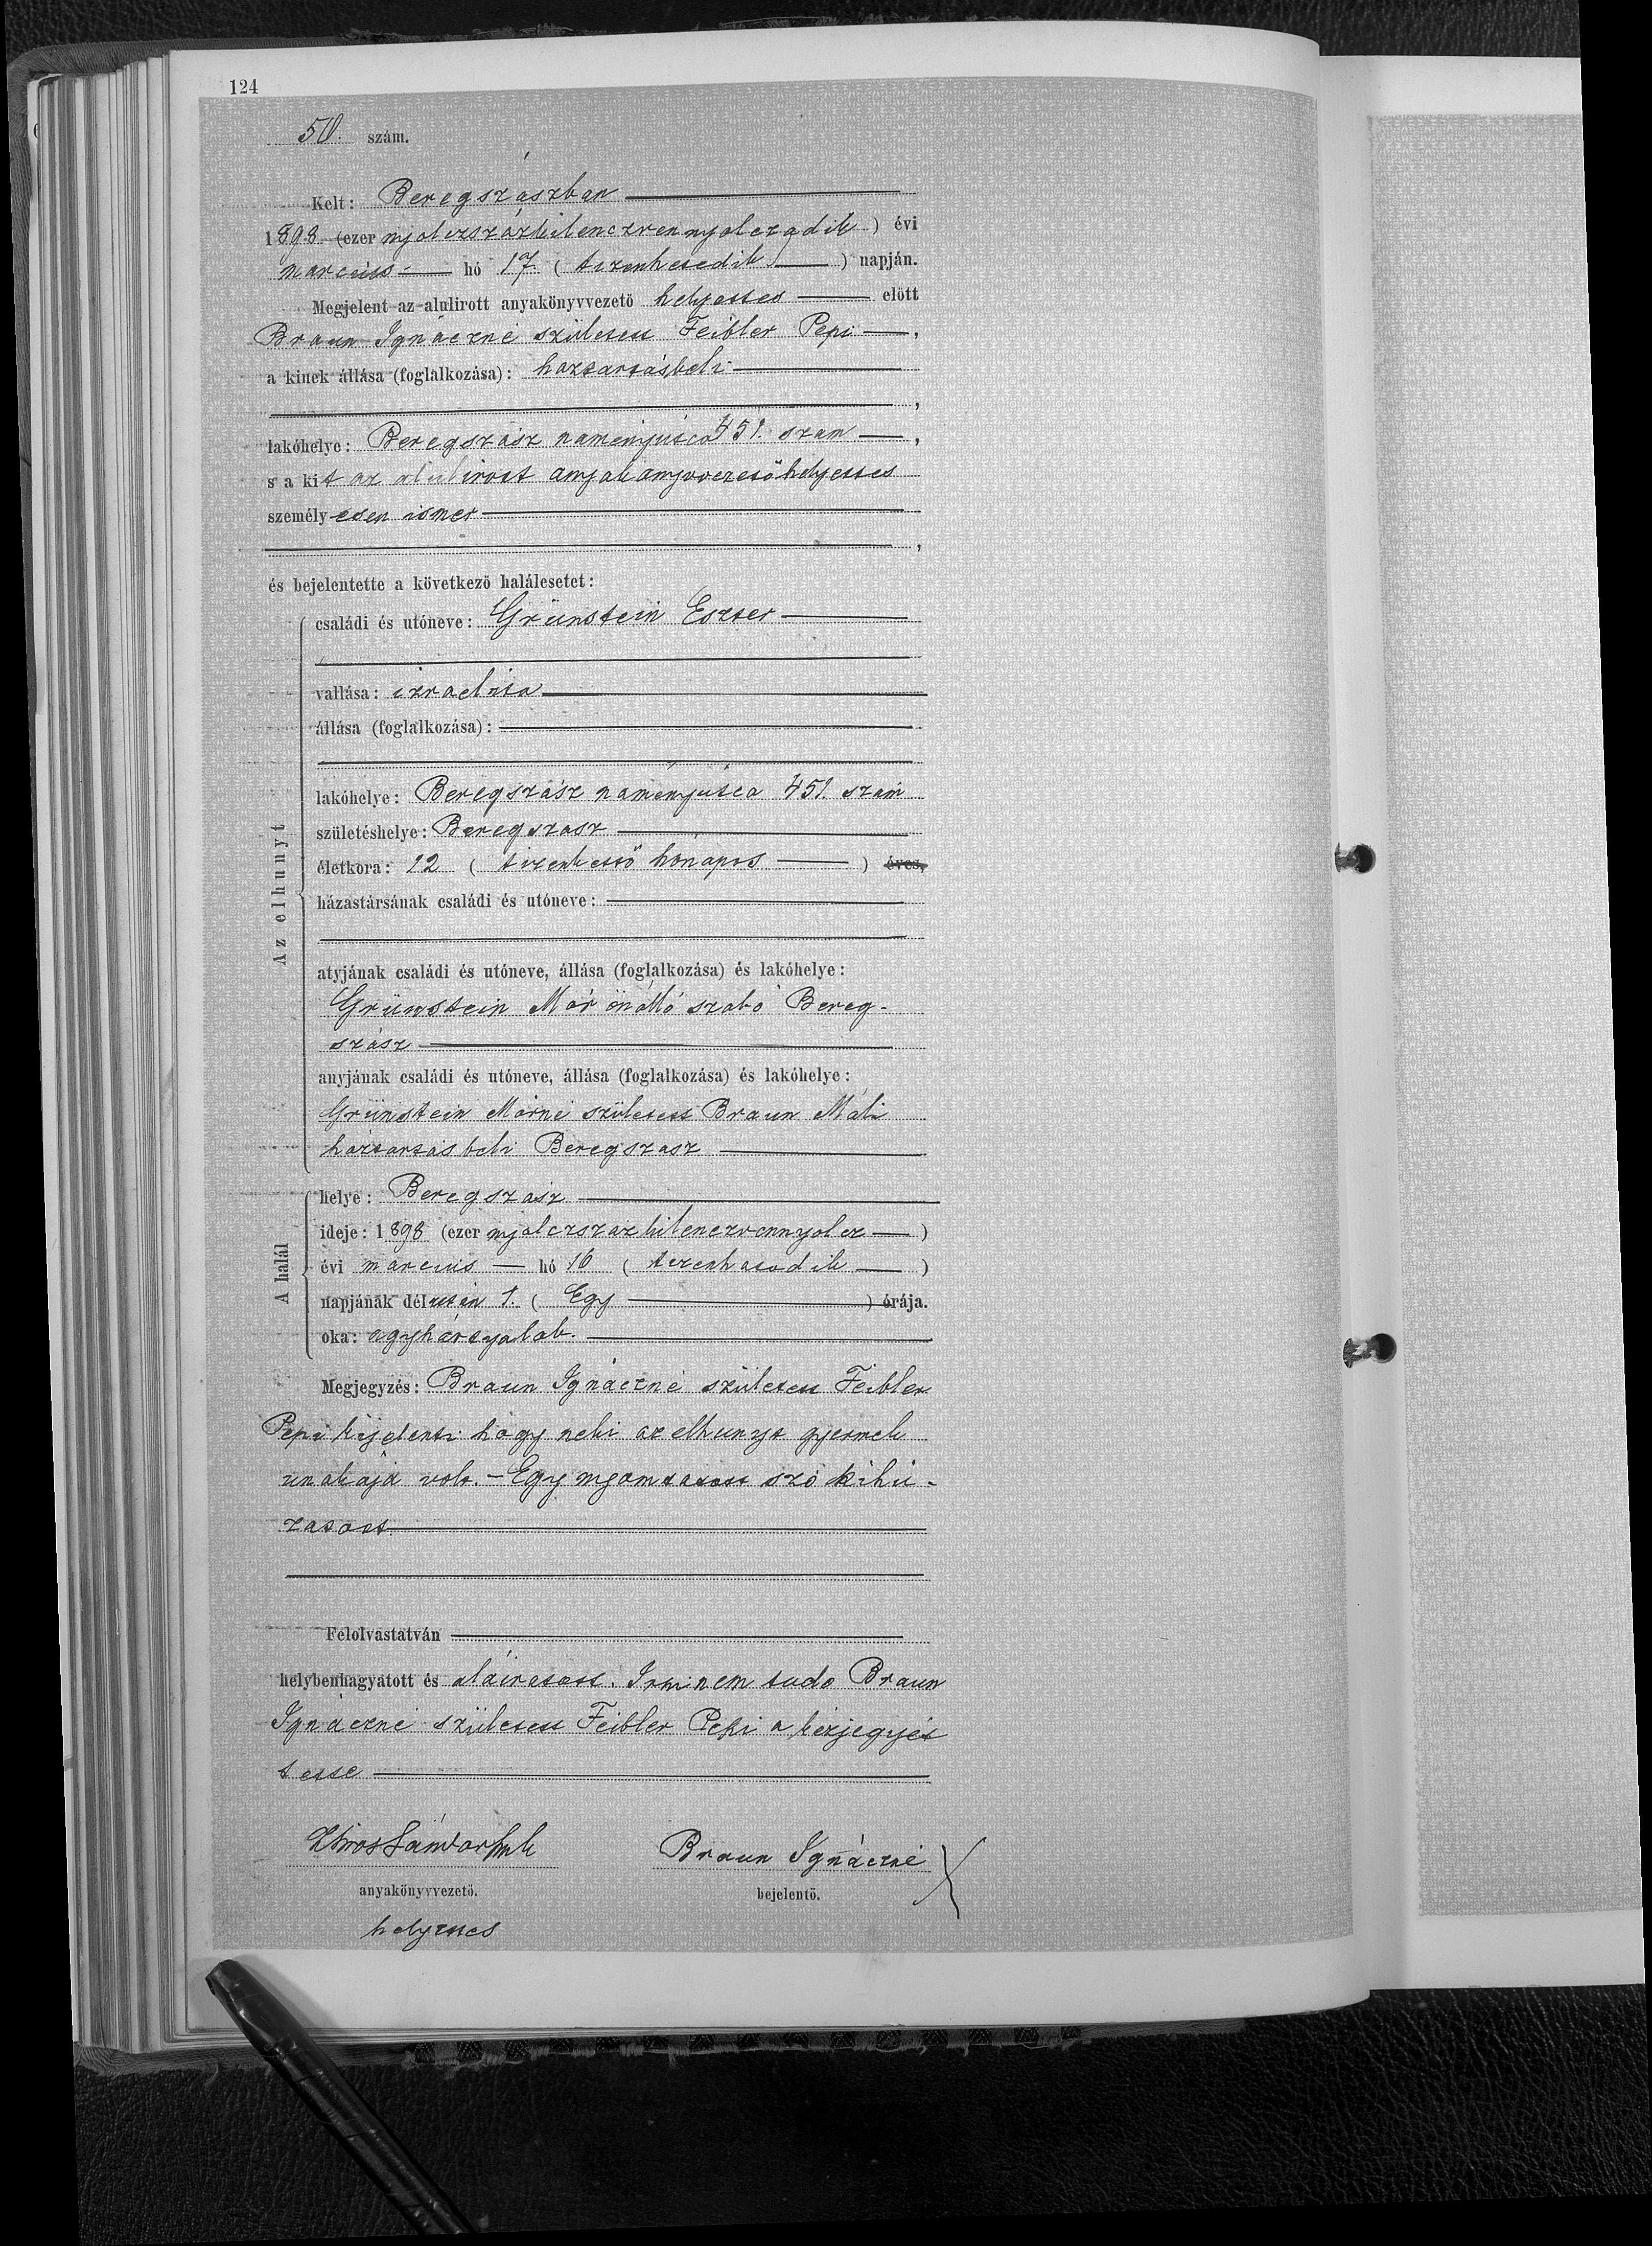 124
50. szám.
Kelt: Beregszászban
1898 (ezer nyolczszázkilenczvennyolczadik) évi
marczius hó 17 (tizenhetedik) napján.
Megjelent az alulirott anyakönyvvezető helyettes előtt
Braun Ignáczné született Feibler Pepi,
a kinek állása (foglalkozása): háztartásbeli
,
lakóhelye: Beregszász naményutca 451. szám,
s a kit az alulirott anyakönyvvezetőhelyettes
személyesen ismer
,
és bejelentette a következő halálesetet:
Az elhunyt
családi és utóneve: Grünstein Eszter
vallása: izraelita
állása (foglalkozása):
lakóhelye: Beregszász naményutca 451. szám
születéshelye: Beregszász
életkora: 12 (tizenkettő hónapos) éves,
házastársának családi és utóneve:
atyjának családi és utóneve, állása (foglalkozása) és lakóhelye:
Grünstein Mór önálló szabó Bereg-
szász
anyjának családi és utóneve, állása (foglalkozása) és lakóhelye:
Grünstein Mórné született Braun Máli
háztartásbeli Beregszász
A halál
helye: Beregszász
ideje: 1898 (ezer nyolczszázkilenczvennyolcz)
évi marczius hó 16 (tizenhatodik)
napjának délután 1. (Egy) órája.
oka: agyhártyalob.
Megjegyzés: Braun Ignáczné született Feibler
Pepi kijelenti hogy neki az elhunyt gyermek
unokája volt. - Egy nyomtatott szó kihú-
zatott
Felolvastatván
helybenhagyatott és aláiratott. Irni nem tudo Braun
Ignáczné született Feibler Pepi a kézjegyét
tette
Braun Ignáczné X
anyakönyvvezető. bejelentő.
helyettes